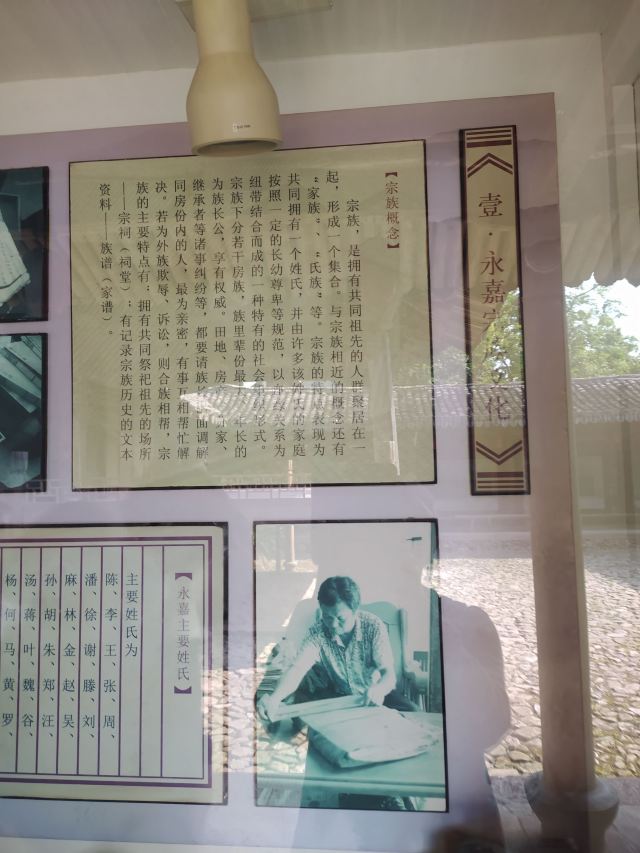 壹·永嘉宗族文化
【宗族概念】
宗族，是拥有共同祖先的人群聚居在一
起，形成一个集合。与宗族相近的概念还有
“家族”、“氏族”等。宗族的特点表现为
共同拥有一个姓氏，并由许多该姓氏的家庭
按照一定的长幼尊卑等规范，以血缘关系为
纽带结合而成的一种特有的社会组织形式。
宗族下分若干房族，族里辈份最高、年长的
为族长公，享有权威。田地、房产、分家、
继承者等诸事纠纷等，都要请族长出面调解
同房份内的人，最为亲密，有事互相帮忙解
决。若为外族欺辱、诉讼，则合族相帮，宗
族的主要特点有：拥有共同祭祀祖先的场所
——宗祠（祠堂）；有记录宗族历史的文本
资料——族谱（家谱）。
【永嘉主要姓氏】
主要姓氏为
陈、李、王、张、周、
潘、徐、谢、滕、刘、
麻、林、金、赵、吴、
孙、胡、朱、郑、汪、
汤、蒋、叶、魏、谷、
杨、何、马、黄、罗、